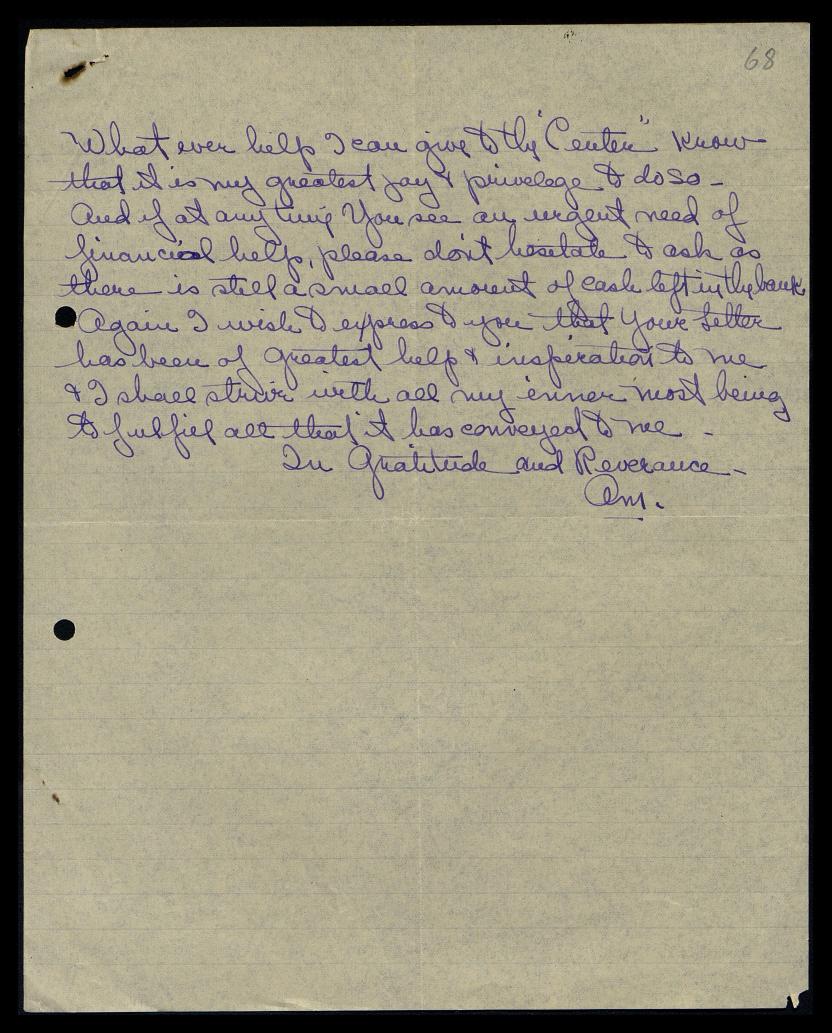 68
What ever help I can give to the "Center" know
that it is my greatest joy & privelege to do so -
And if at any time You see an urgent need of
financial help, please don't hesetate to ask as
there is still a small amount of cash left in the bank.
Again I wish to express to you that Your Letter
has been of greatest help & inspiration to me
& I shall strive with all my inner most being
to fulfill all that it has conveyed to me -
In Gratitude and Reverance -